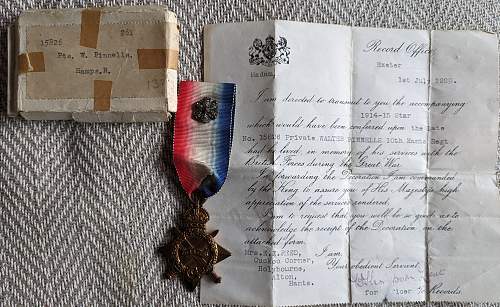 15826 261
Pte. W. Pinnells.
Hamps.R.
Record Office,
Exeter
1st July, 1920.
Madam,
I am directed to transmit to you the accompanying
1914-15 Star
which would have been conferred upon the late
No. 15826 Private WALTER PINNELLS 10th Hants Regt
had he lived, in memory of his services with the
British Forces during the Great War.
In forwarding the Decoration I am commanded
by the King to assure you of His Majesty's high
appreciation of the services rendered.
I am to request that you will be so good as to
acknowledge the receipt of the Decoration on the
attached form.
I am,
Your obedient Servant,
Mrs. REED,
Cuckoo Corner,
Holybourne,
Alton,
Hants.
for Officer Records.